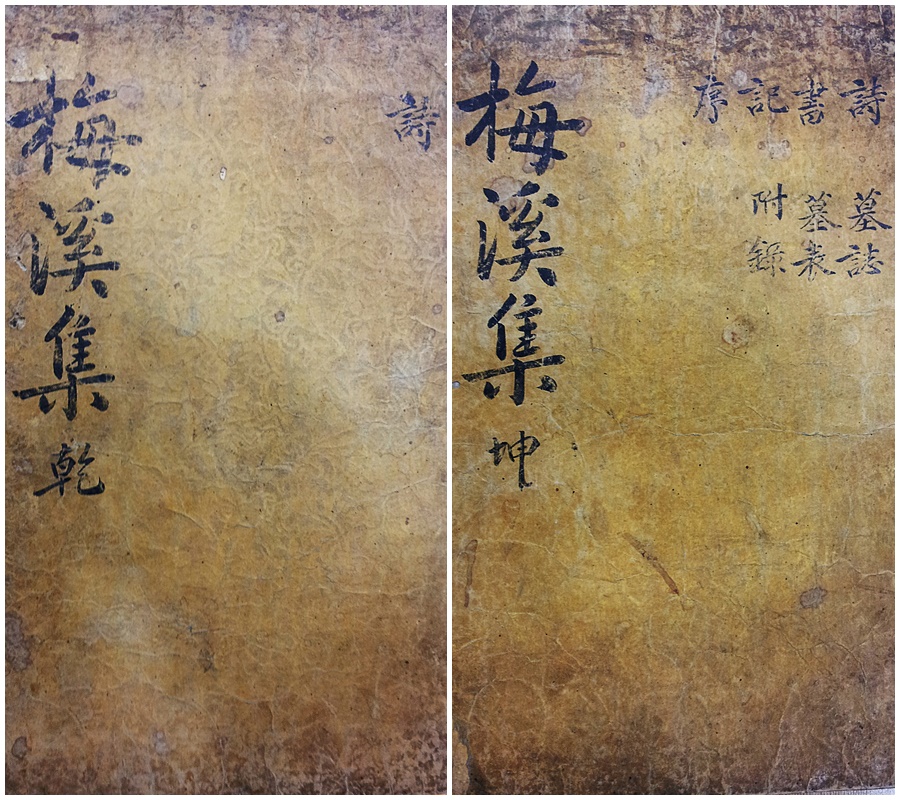 詩
梅溪集 乾
詩 墓誌
書 墓表
記 附錄
序
梅溪集 坤